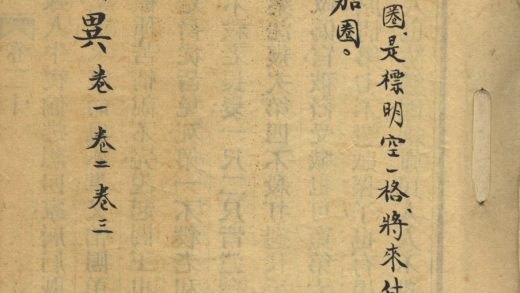 圈、是標明空一格、將來付
加圈。
異 卷一卷二卷三